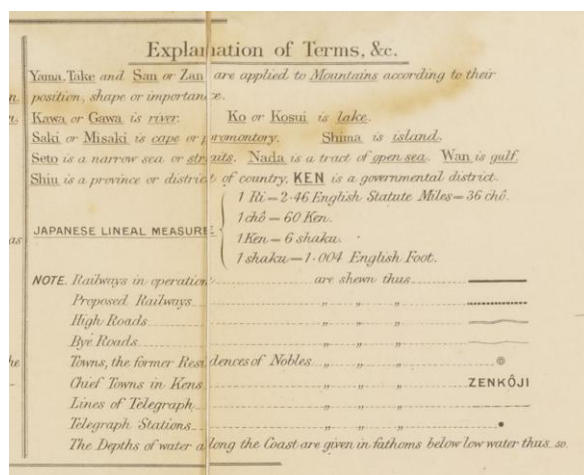 Explanation of Terms, &c.
Yama, Take and San or Zan are applied to Mountains according to their
n. position, shape or importance.
n. Kawa or Gawa is river. Ko or Kosui is lake.
Saki or Misaki is cape or promontory. Shima is island.
Seto is a narrow sea or straits. Nada is a tract of open sea. Wan is gulf.
Shiu is a province or district of country, KEN is a governmental district.
1 Ri = 2·46 English Statute Miles = 36 chô.
1 chô = 60 Ken.
as JAPANESE LINEAL MEASURE
1 Ken = 6 shaku.
1 shaku = 1·004 English Foot.
NOTE. Railways in operation are shewn thus
Proposed Railways " " "
High Roads " " "
Bye Roads " " "
he Towns, the former Residences of Nobles " " "
Chief Towns in Kens " " " ZENKÔJI
Lines of Telegraph " " "
Telegraph Stations " " "
The Depths of water along the Coast are given in fathoms below low water thus. 50.